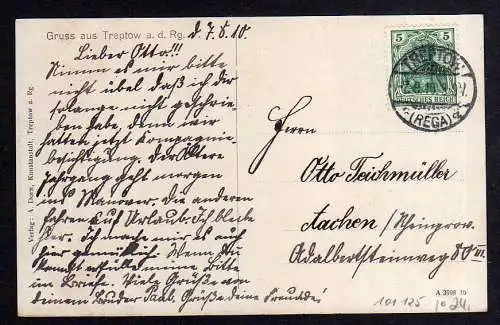 Gruss aus Treptow a. d. Rg.
d. 7.8.10.
Lieber Otto!!!
Nimm es mir bitte
nicht übel daß ich dir
solange nicht geschrie-
ben habe, denn wir
hatten jetzt Kompagnie-
besichtigung. Der Ältere
Jahrgang geht morgen
ins Manover. Die anderen
fahren auf Urlaub. Ich bleibe
hier. Ich mache mir es auf
hier gemütlich. Wenn du
kannst erfülle meine Bitte
im Briefe. Viele Grüße von
deinem Bruder Paul. Grüße deine Freunde!
Verlag: A. Dorn, Kunstanstalt, Treptow a. Rg.
5 5
DEUTSCHES REICH
TREPTOW
(REGA)
Herrn
Otto Teichmüller
Aachen (Rheinprov.
Adalbertsteinweg 80 III.
A. 3598 10
101 125